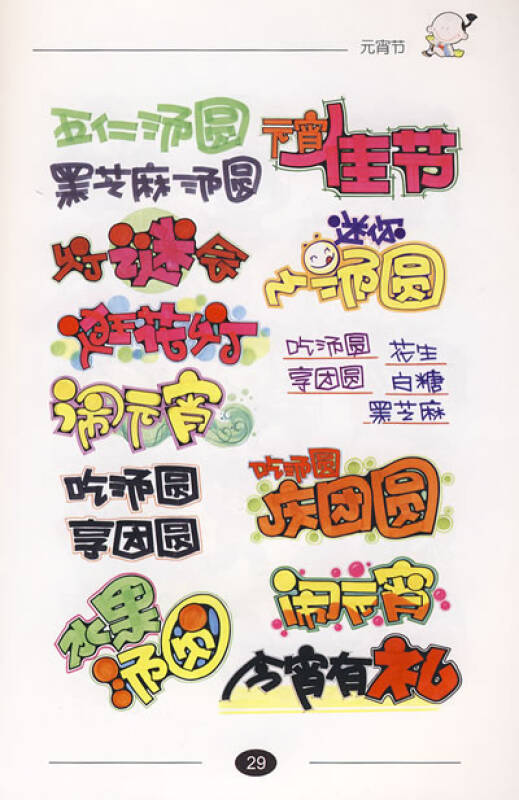 元宵节
五仁汤圆
黑芝麻汤圆
元宵佳节
灯谜会
迷你
汤圆
逛花灯
吃汤圆 花生
享团圆 白糖
黑芝麻
闹元宵
吃汤圆
享团圆
吃汤圆
庆团圆
水果
汤圆
闹元宵
今宵有礼
29